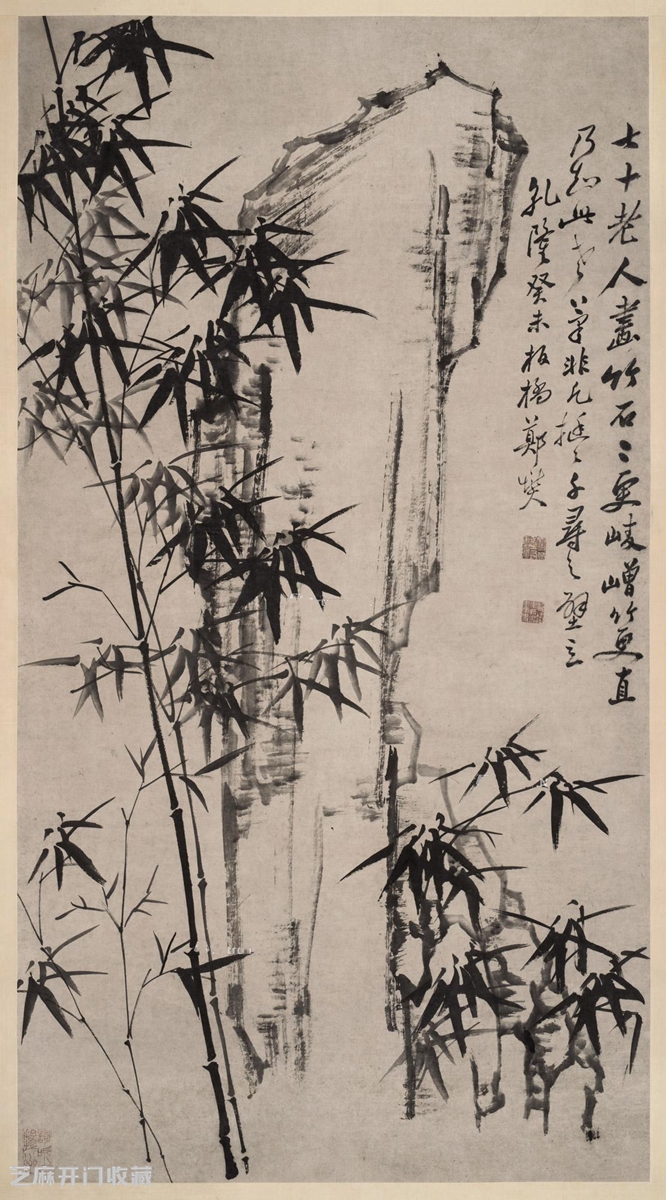 七十老人畫竹石〻更崚嶒竹更直
乃知此老筆非凡挺〻千尋之壁立
乾隆癸未板橋鄭燮
芝麻开门收藏